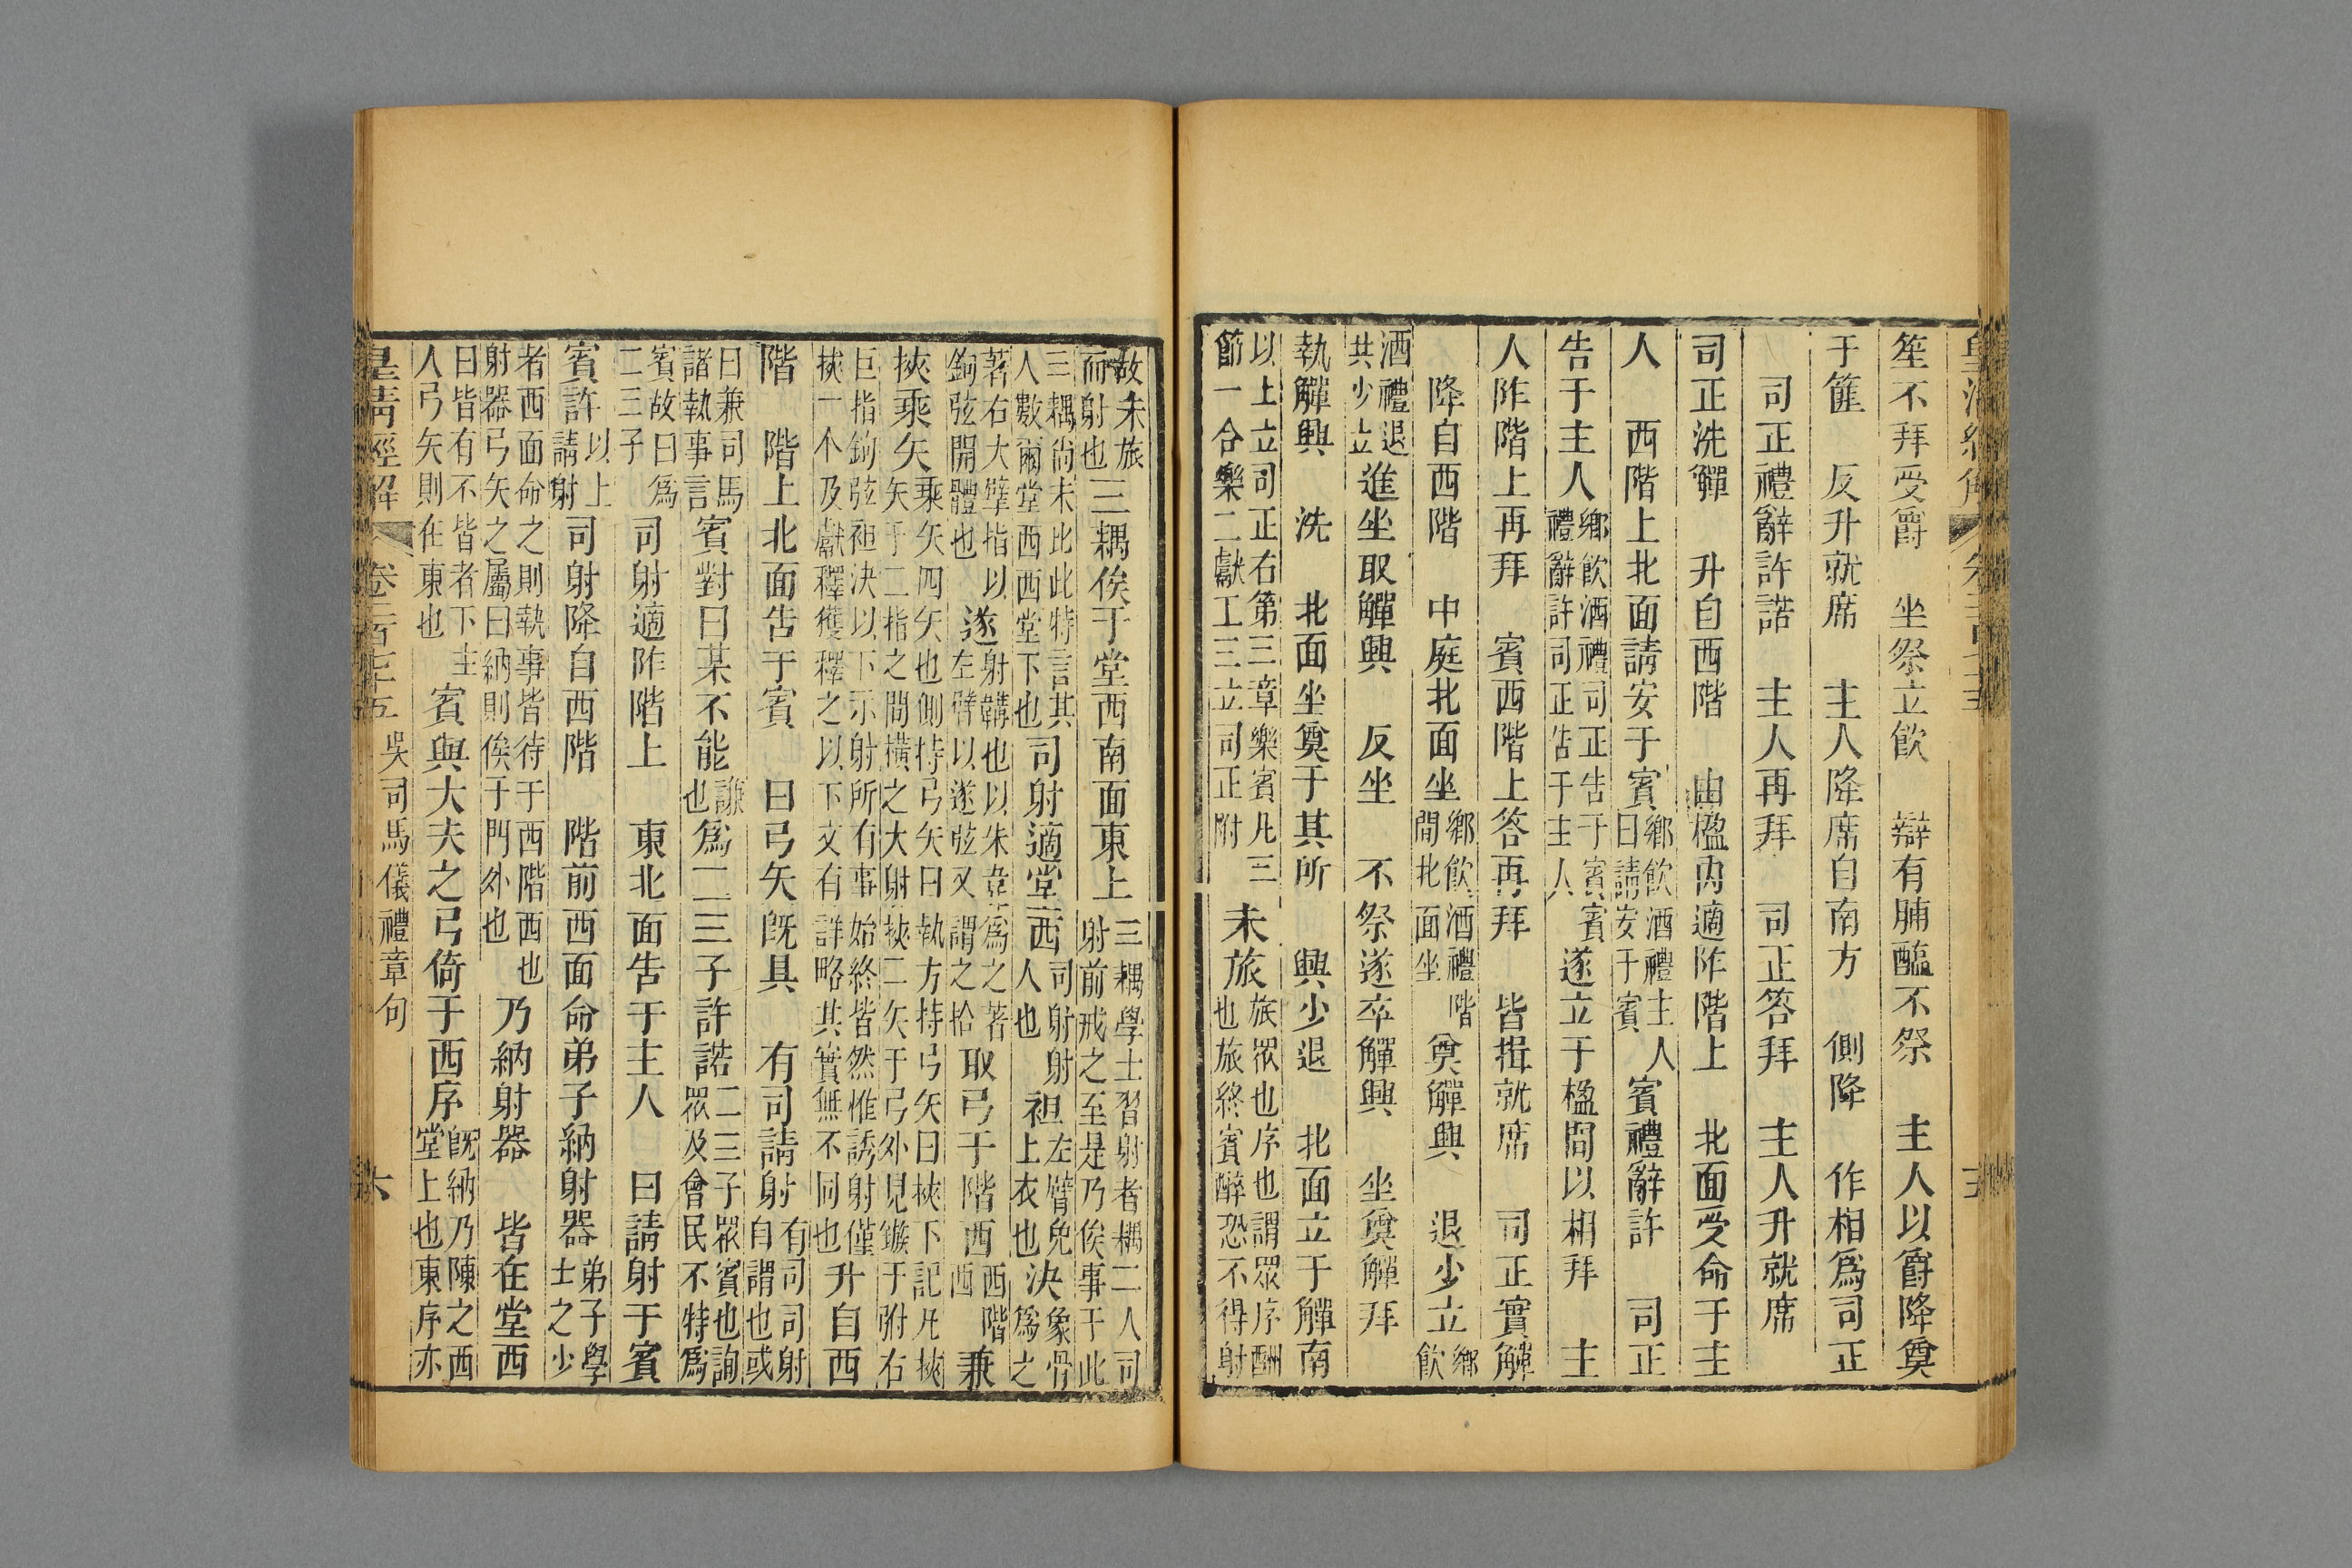 笙不拜受爵　坐祭立飮　辯有脯醢不祭　主人以爵降奠
于篚　反升就席　主人降席自南方　側降　作相爲司正
司正禮辭許諾　主人再拜　司正答拜　主人升就席
司正洗觶　升自西階　由楹內適阼階上　北面受命于主
人　西階上北面請安于賓鄉飮酒禮主人曰請安于賓賓禮辭許　司正
告于主人鄉飮酒禮司正告于賓賓禮辭許司正告于主人遂立于楹間以相拜　主
人阼階上再拜　賓西階上答再拜　皆揖就席　司正實觶
降自西階　中庭北面坐鄉飮酒禮階間北面坐奠觶興　退少立鄉飮
酒禮退共少立進坐取觶興　反坐　不祭遂卒觶興　坐奠觶拜
執觶興　洗　北面坐奠于其所　興少退　北面立于觶南
以上立司正右第三章樂賓凡三節一合樂二獻工三立司正附　未旅旅眾也序也謂眾序酬也旅終賓醉恐不得射
故未旅而射也三耦俟于堂西南面東上三耦學士習射者耦二人司射前戒之至是乃俟事于此
三耦尙未比此特言其人數爾堂西西堂下也司射適堂西司射射人也袒左臂免上衣也決象骨爲之
著右大擘指以鉤弦開體也遂射韝也以朱韋爲之著左臂以遂弦又謂之拾取弓于階西西階西兼
挾乘矢乘矢四矢也側持弓矢曰執方持弓矢曰挾下記凡挾矢于二指之間橫之大射挾二矢于弓外見鏃于弣右
巨指鉤弦袒決以下示射所有事始終皆然惟誘射僅挾一个及獻釋獲釋之以下文有詳略其實無不同也升自西
階　階上北面告于賓　曰弓矢旣具　有司請射有司司射自謂也或
曰兼司馬諸執事言賓對曰某不能謙也爲二三子許諾二三子眾賓也詢眾及會民不特爲
賓故曰爲二三子司射適阼階上　東北面告于主人　曰請射于賓
賓許以上請射司射降自西階　階前西面命弟子納射器弟子學士之少
者西面命之則執事皆待于西階西也射器弓矢之屬曰納則俟于門外也乃納射器　皆在堂西
曰皆有不皆者下主人弓矢則在東也賓與大夫之弓倚于西序旣納乃陳之西堂上也東序亦
皇淸經解　卷二百七十五　吳司馬儀禮章句　六